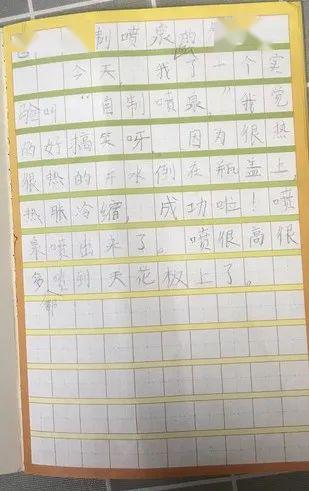 制喷泉的
今天，我了一个实
验叫“自制喷泉，”我觉
的好搞笑呀，因为很热
很热的开水倒在瓶盖上，
热胀冷缩，成功啦！喷
泉喷出来了。喷很高很
多都喷到天花板上了。